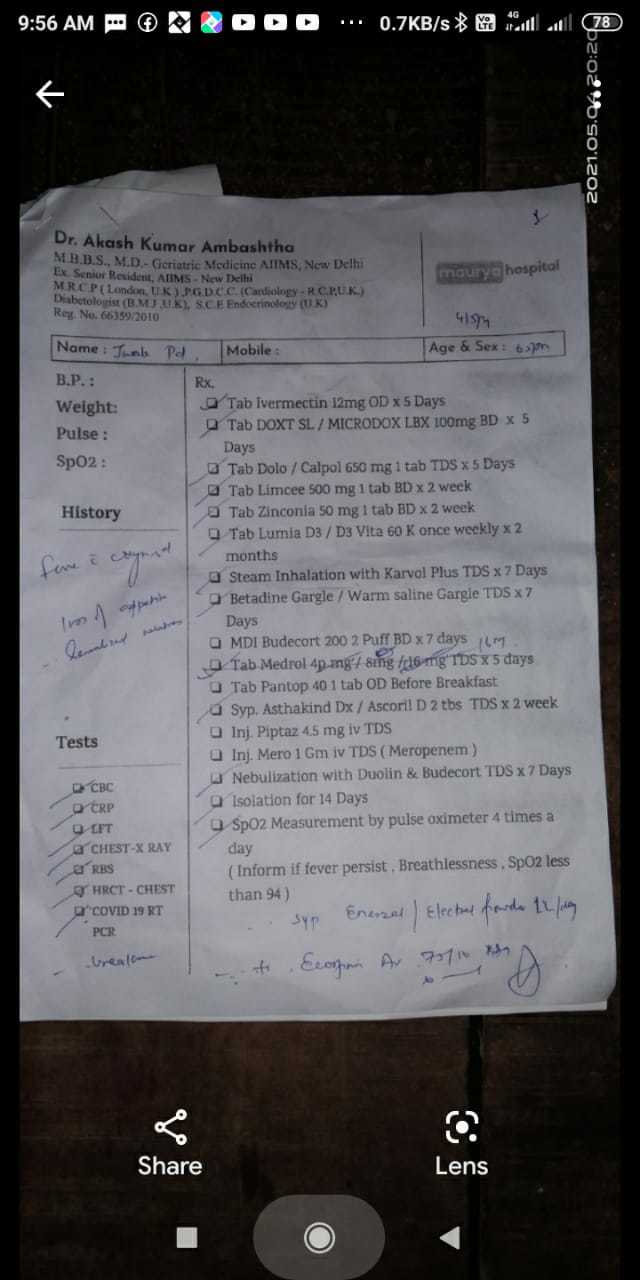 9:56 AM ... 0.7KB/s Vo LTE 4G 78
2021.05.04 20:20
Dr. Akash Kumar Ambashtha
M.B.B.S., M.D.- Geriatric Medicine AIIMS, New Delhi
Ex. Senior Resident, AIIMS - New Delhi
M.R.C.P ( London, U.K ) ,P.G.D.C.C. (Cardiology - R.C.P,U.K.)
Diabetologist (B.M.J ,U.K), S.C.E Endocrinology (U.K)
Reg. No. 66359/2010
maurya hospital
Name :
Mobile :
Age & Sex :
B.P. :
Weight:
Pulse :
SpO2 :
History
loss of
Tests
CBC
CRP
LFT
CHEST-X RAY
RBS
HRCT - CHEST
COVID 19 RT
PCR
Rx.
Tab Ivermectin 12mg OD x 5 Days
Tab DOXT SL / MICRODOX LBX 100mg BD x 5
Days
Tab Dolo / Calpol 650 mg 1 tab TDS x 5 Days
Tab Limcee 500 mg 1 tab BD x 2 week
Tab Zinconia 50 mg 1 tab BD x 2 week
Tab Lumia D3 / D3 Vita 60 K once weekly x 2
months
Steam Inhalation with Karvol Plus TDS x 7 Days
Betadine Gargle / Warm saline Gargle TDS x 7
Days
MDI Budecort 200 2 Puff BD x 7 days
Tab Medrol 4p mg / 8mg / 16 mg TDS x 5 days
Tab Pantop 40 1 tab OD Before Breakfast
Syp. Asthakind Dx / Ascoril D 2 tbs TDS x 2 week
Inj. Piptaz 4.5 mg iv TDS
Inj. Mero 1 Gm iv TDS ( Meropenem )
Nebulization with Duolin & Budecort TDS x 7 Days
Isolation for 14 Days
SpO2 Measurement by pulse oximeter 4 times a
day
( Inform if fever persist , Breathlessness , SpO2 less
than 94 )
Syp Enerzal / Electral powder
Ecosprin Av 75/10
Share
Lens